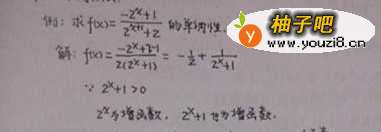 例：求f(x)= (-2^x+1)/(2^(x+1)+2) 的单调性.
解：f(x)= (-2^x+2-1)/(2(2^x+1)) = -1/2 + 1/(2^x+1)
∵ 2^x+1>0
2^x为增函数，2^x+1也为增函数.
柚子吧
www.youzi8.cn